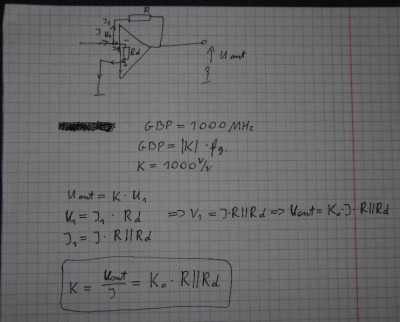 R
J₂
J U₁
J₁ Rd
Uout
GBP = 1000 MHz
GBP = |K| · fg.
K = 1000 V/V
Uout = K · U₁
U₁ = J₁ · Rd => V₁ = J·R||Rd => Uout = K₀·J·R||Rd
J₁ = J · R||Rd
K = Uout/J = K₀ · R||Rd